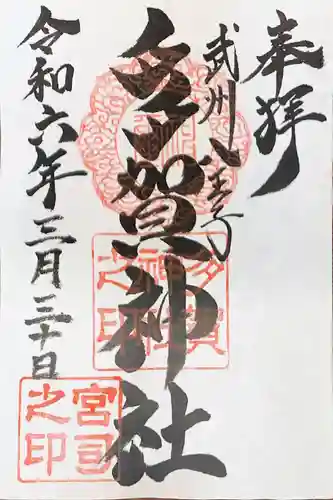 奉拝
武州八王子
多賀神社
令和六年三月三十日
多賀
神社
之印
宮司
之印